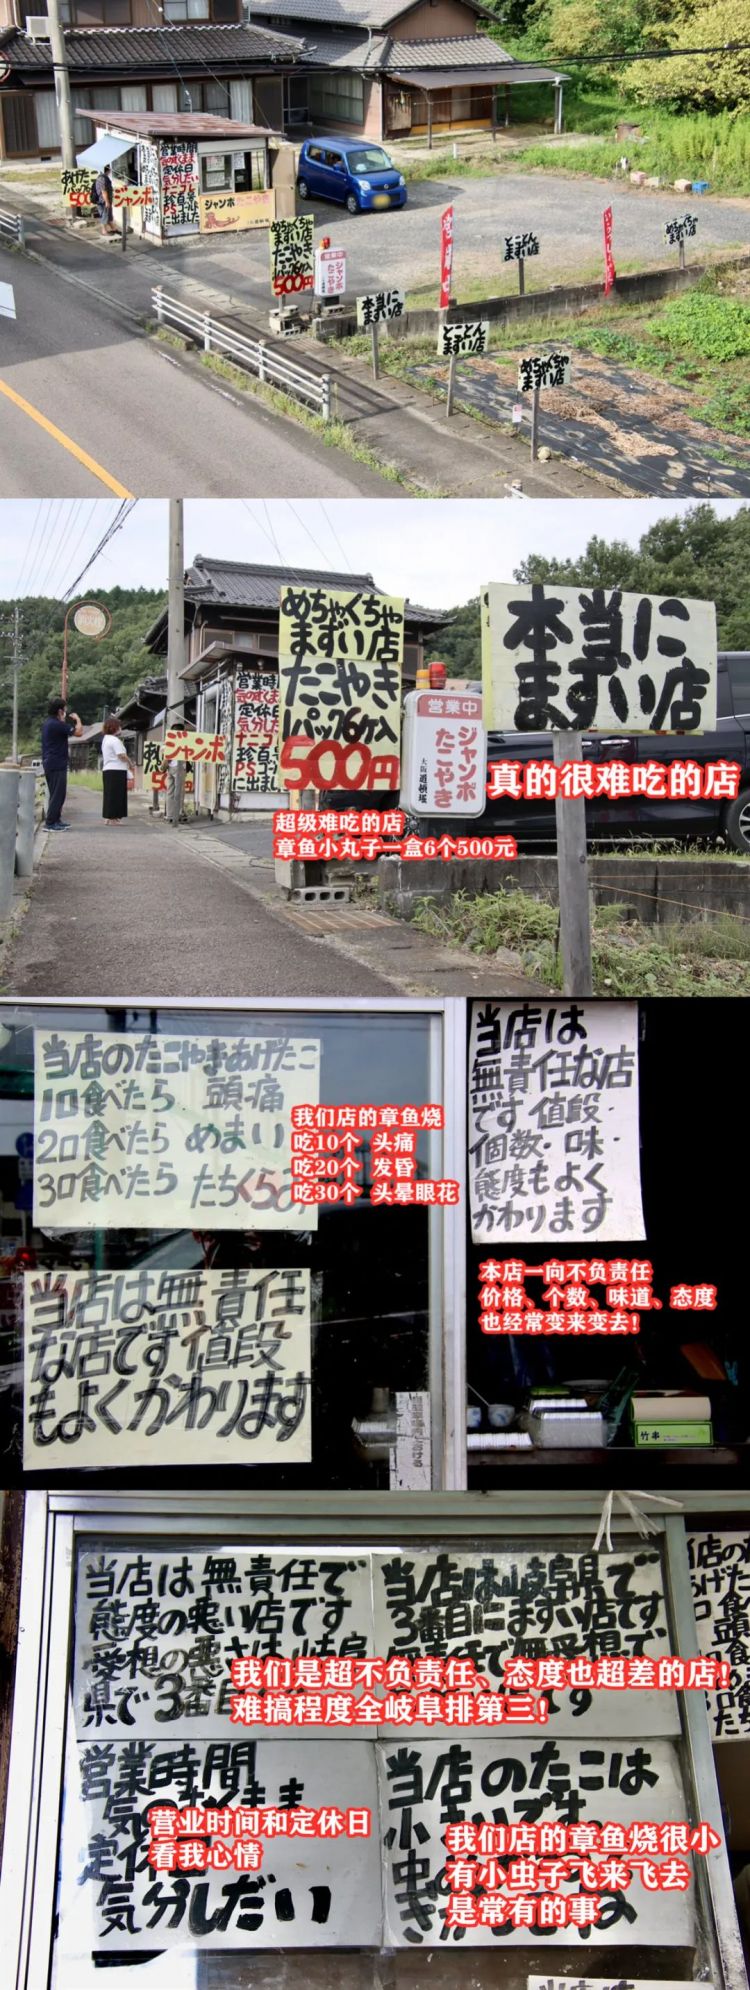 営業時間
気のすくまま
定休日
気分しだい
あげたこ
1パック
500
ジャンボ
ジャンボ
たこやき
めちゃくちゃ
まずい店
たこやき
1パック6ケ入
500円
営業中
ジャンボ
たこやき
本当に
まずい店
とことん
まずい店
めちゃくちゃ
まずい店
とことん
まずい店
めちゃくちゃ
まずい店
めちゃくちゃ
まずい店
たこやき
1パック6ケ入
500円
営業中
ジャンボ
たこやき
大阪道頓堀
本当に
まずい店
ジャンボ
真的很难吃的店
超级难吃的店
章鱼小丸子一盒6个500元
当店のたこやきあげたこ
1口食べたら 頭痛
2口食べたら めまい
3口食べたら たちくらみ
我们店的章鱼烧
吃10个 头痛
吃20个 发昏
吃30个 头晕眼花
当店は無責任
な店です値段
もよくかわります
当店は
無責任な店
です 値段・
個数・味・
態度もよく
かわります
本店一向不负责任
价格、个数、味道、态度
也经常变来变去!
竹串
当店は無責任で
態度の悪い店です
愛想の悪さは岐阜
県で3番目
当店は岐阜県で
3番目にまずい店です
無愛想で
です
我们是超不负责任、态度也超差的店!
难搞程度全岐阜排第三!
営業時間
気の
まま
定休日
気分しだい
营业时间和定休日
看我心情
当店のたこは
小さいです
虫
我们店的章鱼烧很小
有小虫子飞来飞去
是常有的事